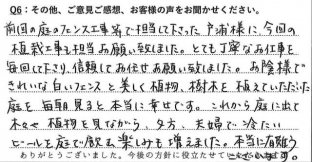 Q6：その他、ご意見ご感想、お客様の声をお聞かせください。
前回の庭のフェンス工事等で担当して下さった戸浦様に、今回の
植栽工事も担当お願い致しました。とても丁寧なお仕事を
毎回して下さり、信頼してお任せお願い致しました。お陰様で
きれいな白いフェンスと美しく植物、樹木を植えていただいた
庭を毎朝見ると本当に幸せです。これから庭に出て
木々や植物を見ながら、夕方、夫婦で冷たい
ビールを庭で飲む楽しみも増えました。本当に有難う
ございます。
ありがとうございました。今後の方針に役立たせて